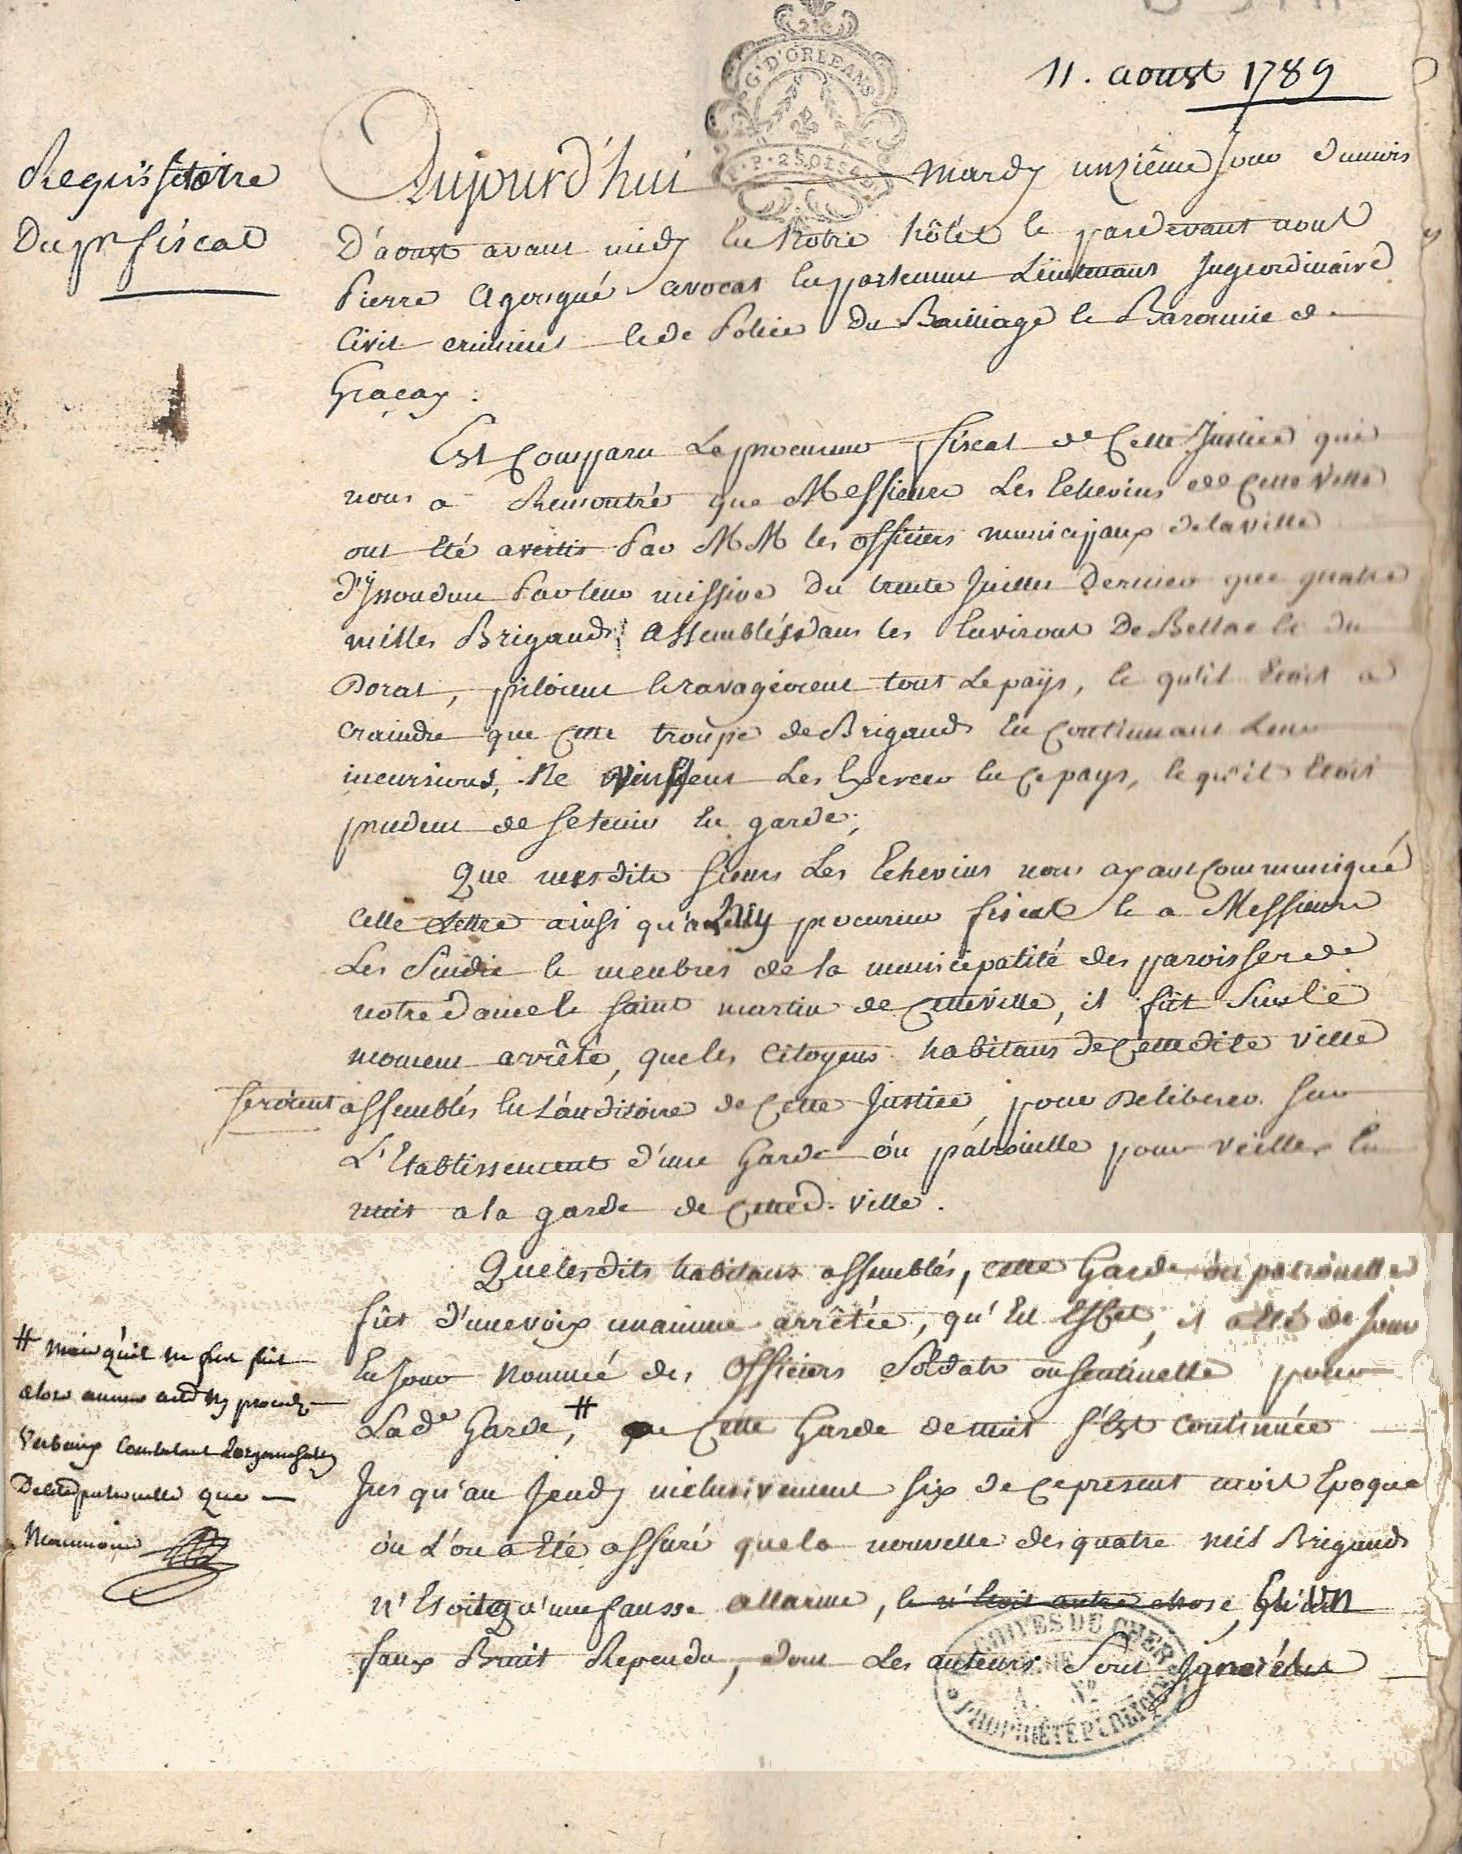 11. aoust 1789
G. D'ORLEANS
Requisitoire
Du pr fiscal
Aujourd'hui mardy unzième Jour du mois
D'aoust avant midy En Notre hôtel Et pardevant nous
Pierre Agougué avocat En parlement Lieutenant Juge ordinaire
Civil criminel Et de Police Du Bailliage Et Baronnie de
Graçay.
Est Comparu Le procureur fiscal de Cette Justice qui
nous a Remontré que Messieurs Les Echevins de Cette Ville
ont Eté avertis Par MM les officiers municipaux de la ville
d'Issoudun Par leur missive Du trente Juillet Dernier que quatre
milles Brigands Assemblés dans les Environs De Bellac Et du
Dorat, piloient Et ravageoient tout Le pays, Et qu'il Etoit a
craindre que Cette troupe de Brigands En Continuant Leurs
incursions, Ne Vinssent Les Exercer En Ce pays, Et qu'il Etoit
prudent de se tenir En garde;
Que mesdits sieurs Les Echevins nous ayant Communiqué
Cette Lettre ainsi qu'a Luy procureur fiscal Et a Messieurs
Les Sindic Et membres de la municipalité des paroisses de
notre Dame Et Saint martin de Cette ville, il fût Sur Le
moment arrêté, que les Citoyens habitans de Cette dite ville
seroient assemblés En L'auditoire de Cette Justice, pour Deliberer sur
L'Etablissement d'une Garde óu pátrouille pour veiller En
nuit a la garde de Cette d. Ville.
Que les dits habitans assemblés, cette Garde óu patrouille
fût d'une voix unanime arrêtée, qu'En Effet, il a Eté de Jour
En Jour Nommé des Officiers Soldats ou Sentinelle pour
La de Garde, # que Cette Garde de nuit s'Est Continuée
Jusqu'au Jeudy inclusivement six de Ce present mois Epoque
óu L'on a Eté assuré que la nouvelle des quatre mil Brigands
n'Etoit qu'une fausse allarme, Et n'Etoit autre chose, qu'un
faux Bruit Rependu, dont Les auteurs Sont Ignorés
# mais qu'il ne fut fait
alors aucun acte ny procès
Verbaux Constatant L'organisation
De lad patrouille que
Neanmoins
ARCHIVES DU CHER
PROPRIÉTÉ PUBLIQUE